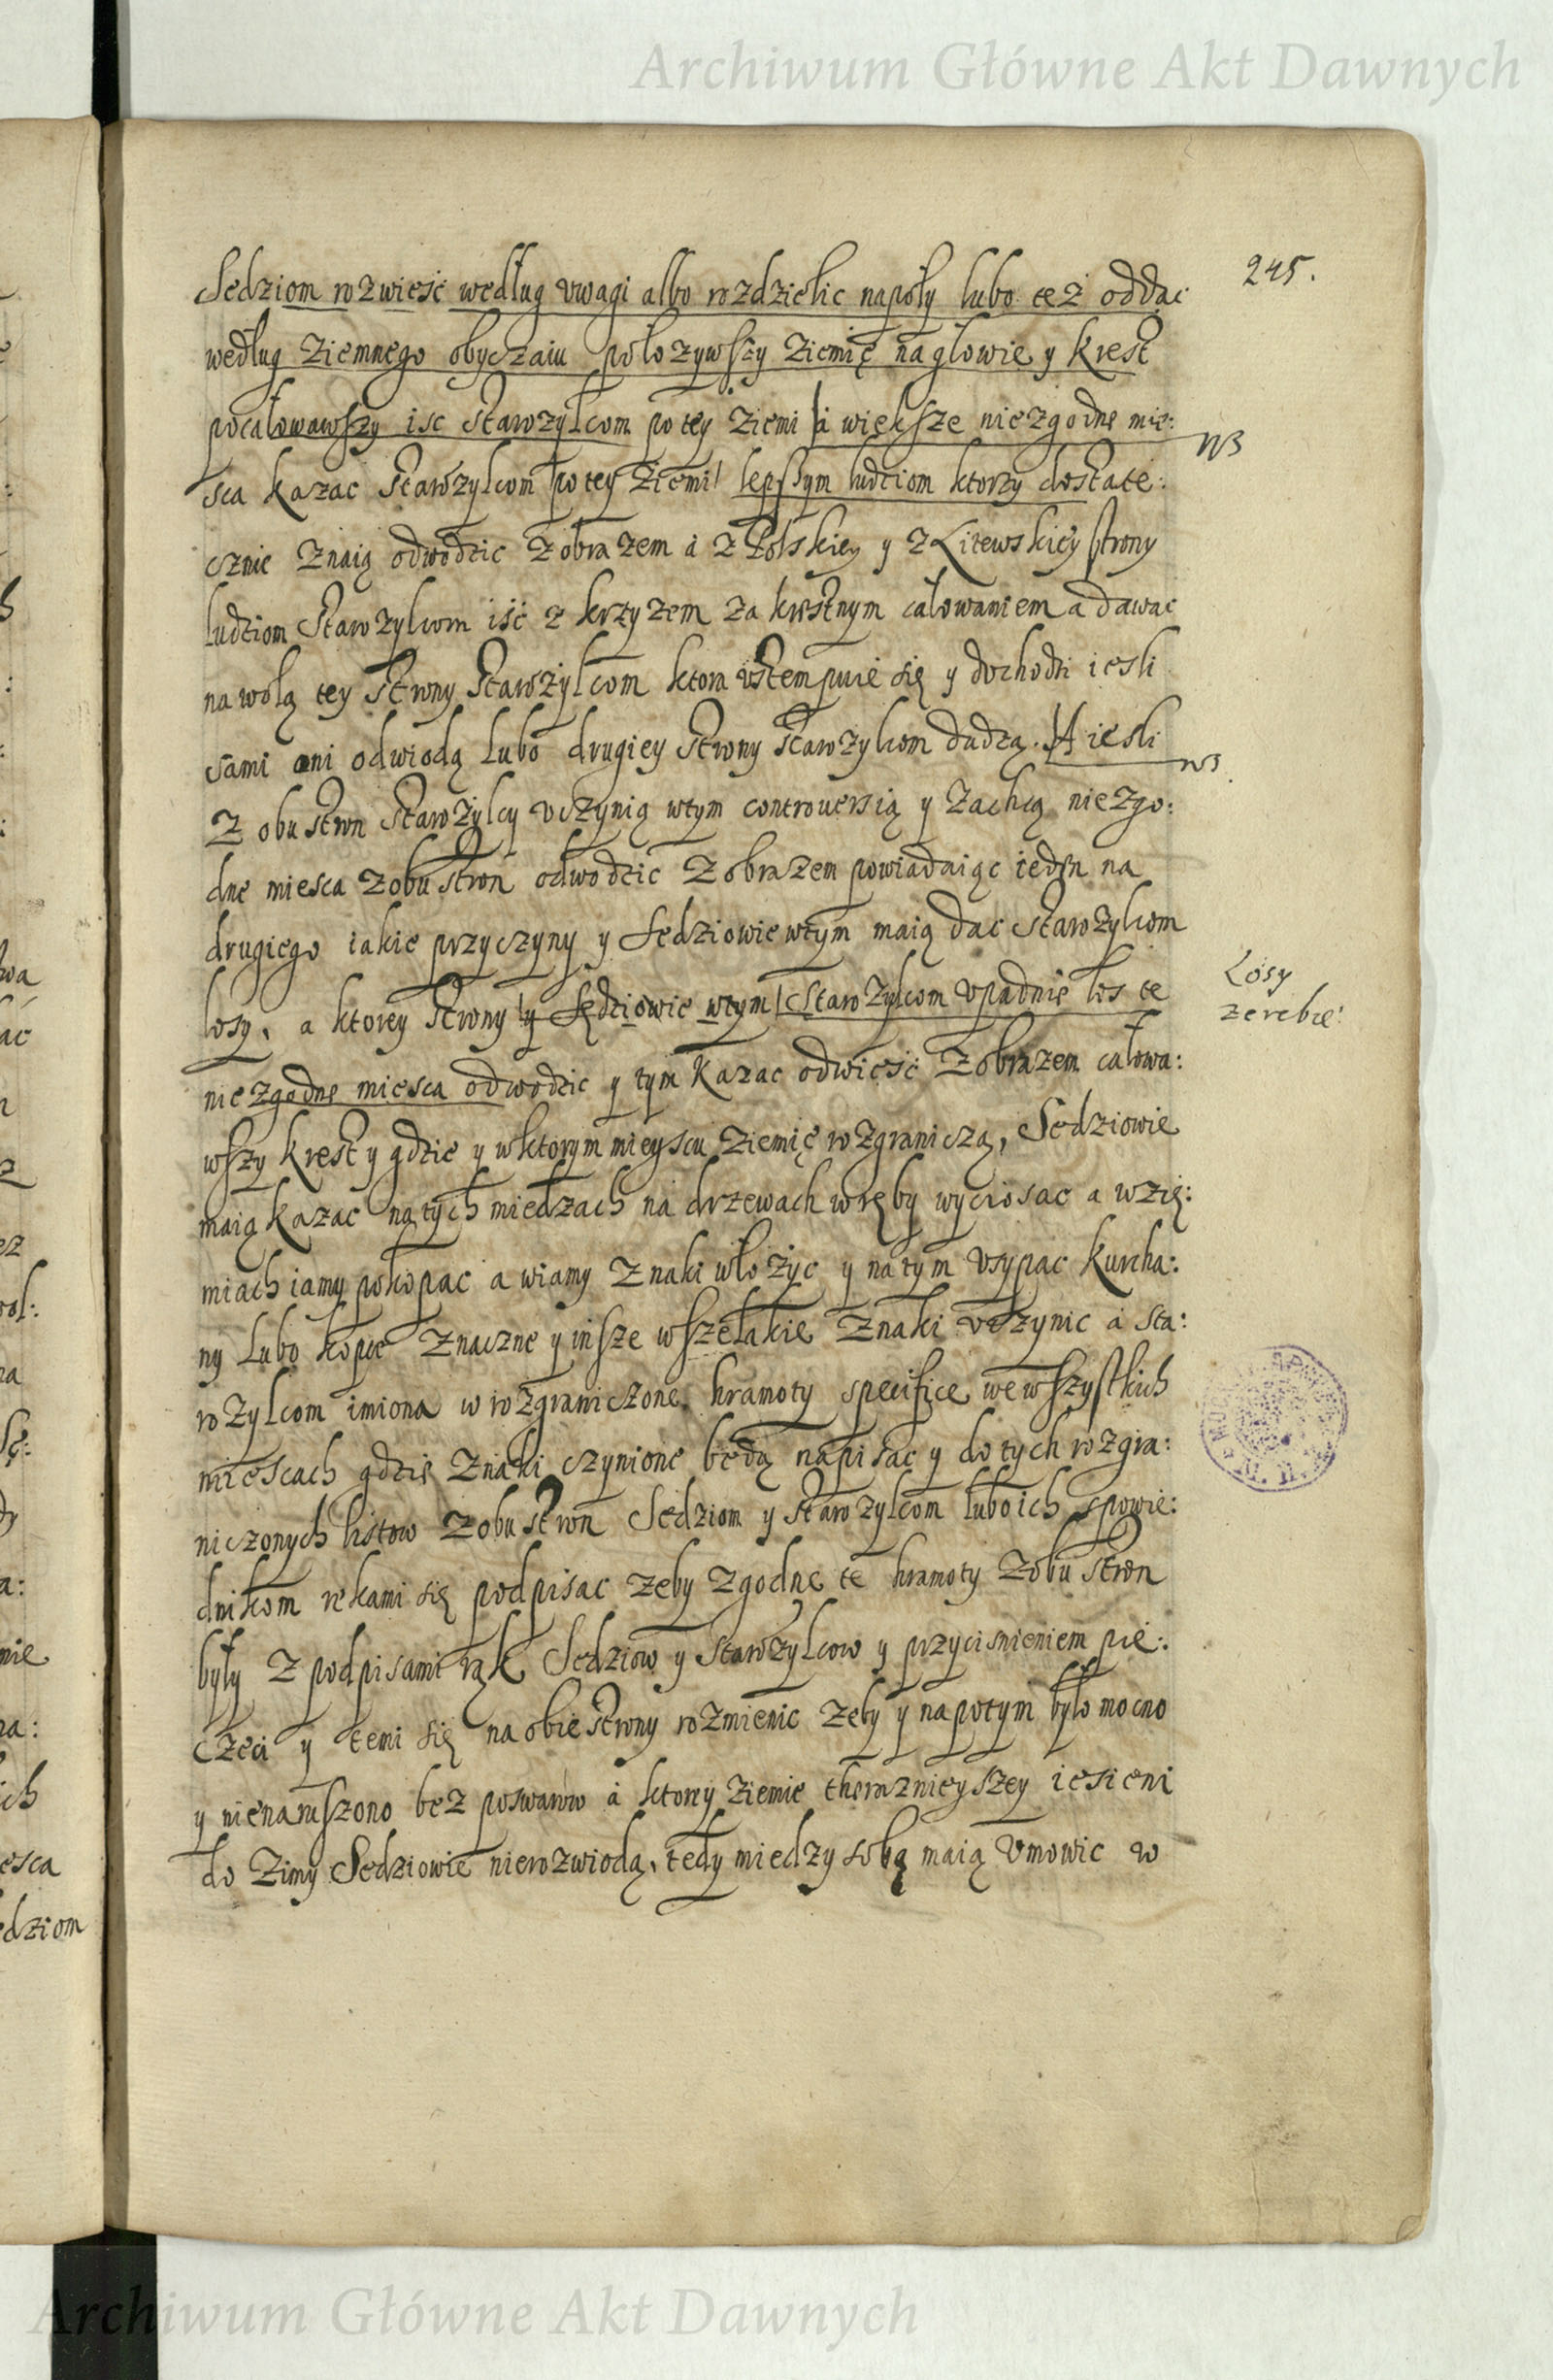 Archiwum Główne Akt Dawnych
245.
Sedziom rozwiesć według uwagi albo rozdzielic napoły lubo też oddac
według Ziemnego obyczaiu położywszy Ziemię na głowie y krest
pocałowawszy isc starożylcom po tey Ziemi a większe niezgodne mie:
NB
sca kazac Starożylcom po tey Ziemi lepszym ludziom ktorzy dostate:
cznie znaią odwodzic z obrazem a z Polskiey y z Litewskiey strony
ludziom Starożylcom iść z krzyżem za krestnym całowaniem a dawac
na wolą tey strony Starożylcom ktora ustempuie się y dochodzi iesli
sami oni odwiodą lubo drugiey strony starożylcom dadzą. A iesli
NB.
z obu stron Starożylcy uczynią w tym controuersią y zachcą niezgo:
dne miesca z obu stron odwodzic z obrazem powiadaiąc ieden na
drugiego iakie przyczyny y Sedziowie w tym maią dac starożylcom
losy, a ktorey strony y Sędziowie w tym Starożylcom upadnie los te
Losy
zerebie:
niezgodne miesca odwodzic y tym kazac odwieść z obrazem całowa:
wszy krest y gdzie y w ktorym mieyscu Ziemię rozgraniczą, Sedziowie
maią kazac na tych miedzach na drzewach wręby wyciosac a w zię:
miach iamy pokopac a w iamy znaki włożyc y na tym usypac kurcha:
ny lubo kopce znaczne y insze wszelakie znaki uczynic a sta:
rożylcom imiona w rozgraniczone hramoty specifice we wszystkich
miescach gdzie znaki czynione będą napisac y do tych rozgra:
niczonych listow z obu stron Sedziom y starożylcom lubo ich spowie:
dnikom rekami się podpisac zeby zgodne te hramoty z obu stron
były z podpisami rąk Sedziow y starożylcow y przycisnieniem pie:
częci y temi się na obie strony rozmienic zeby y napotym było mocno
y nienaruszono bez poswarow a ktorey Ziemie teraznieyszey iesieni
do Zimy Sedziowie nierozwiodą, tedy miedzy sobą maią umowic w
Archiwum Główne Akt Dawnych